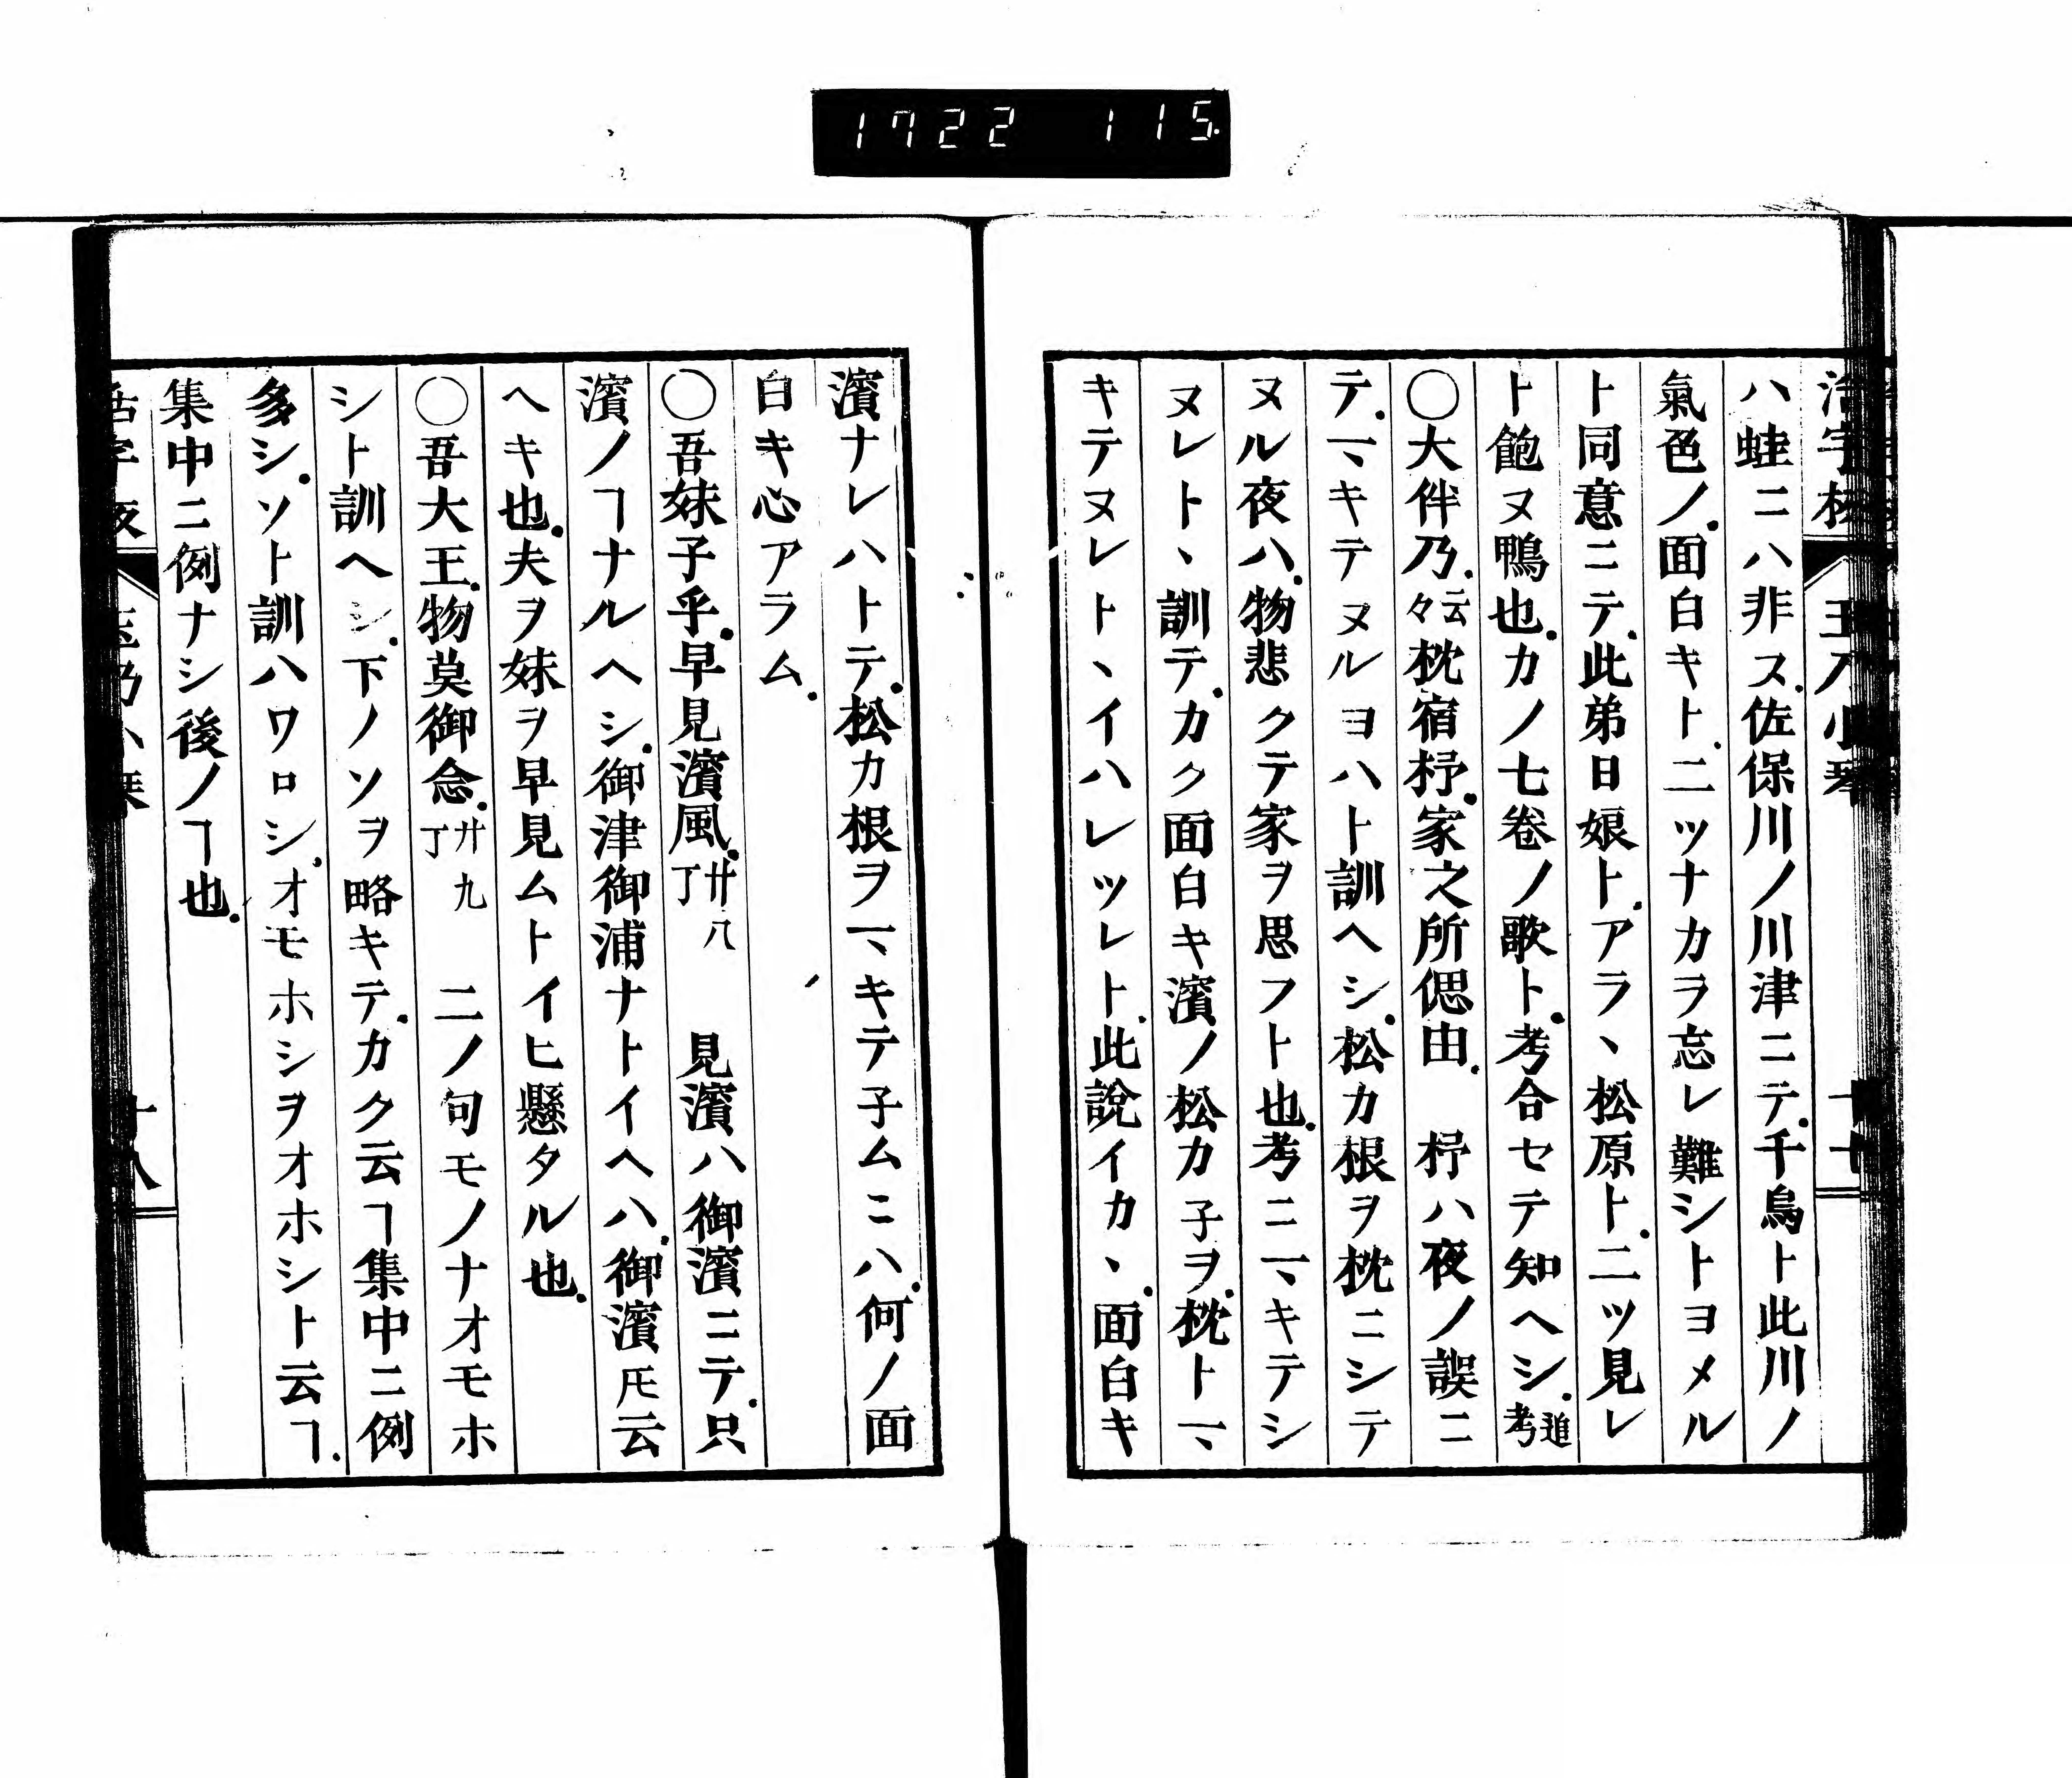 1722 115
ハ蛙ニハ非ス.佐保川ノ川津ニテ.千鳥ト此川ノ
氣色ノ.面白キト.二ツナカラ忘レ難シトヨメル
ト同意ニテ.此弟日娘ト.アラヽ松原ト.二ツ見レ
ト飽ヌ鴨也.カノ七卷ノ歌ト.考合セテ知ヘシ.追考
〇大伴乃.云々枕宿杼.家之所偲由.　杼ハ夜ノ誤ニ
テ.一ヽキテヌルヨハト訓ヘシ.松カ根ヲ枕ニシテ
ヌル夜ハ.物悲クテ家ヲ思フト也.考ニ一ヽキテシ
ヌレトヽ訓テ.カク面白キ濱ノ松カ子ヲ.枕ト一ヽ
キテヌレトヽイハレツレト.此說イカヽ.面白キ
濱ナレハトテ.松カ根ヲ一ヽキテ子ムニハ.何ノ面
白キ心アラム.
〇吾妹子乎.早見濱風.廿八丁　見濱ハ御濱ニテ.只
濱ノヿナルヘシ.御津御浦ナトイヘハ.御濱𪜈云
ヘキ也.夫ヲ妹ヲ早見ムトイヒ懸タル也.
〇吾大王.物莫御念.廿九丁　二ノ句モノナオモホ
シト訓ヘシ.下ノソヲ略キテ.カク云ヿ集中ニ例
多シ.ソト訓ハワロシ.オモホシヲオホシト云ヿ.
集中ニ例ナシ後ノヿ也.
十八